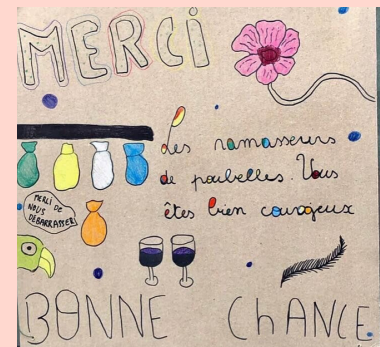 MERCI
Les ramasseurs
de poubelles. Vous
êtes bien courageux
MERCI DE
NOUS
DÉBARRASSER
BONNE ChANCE